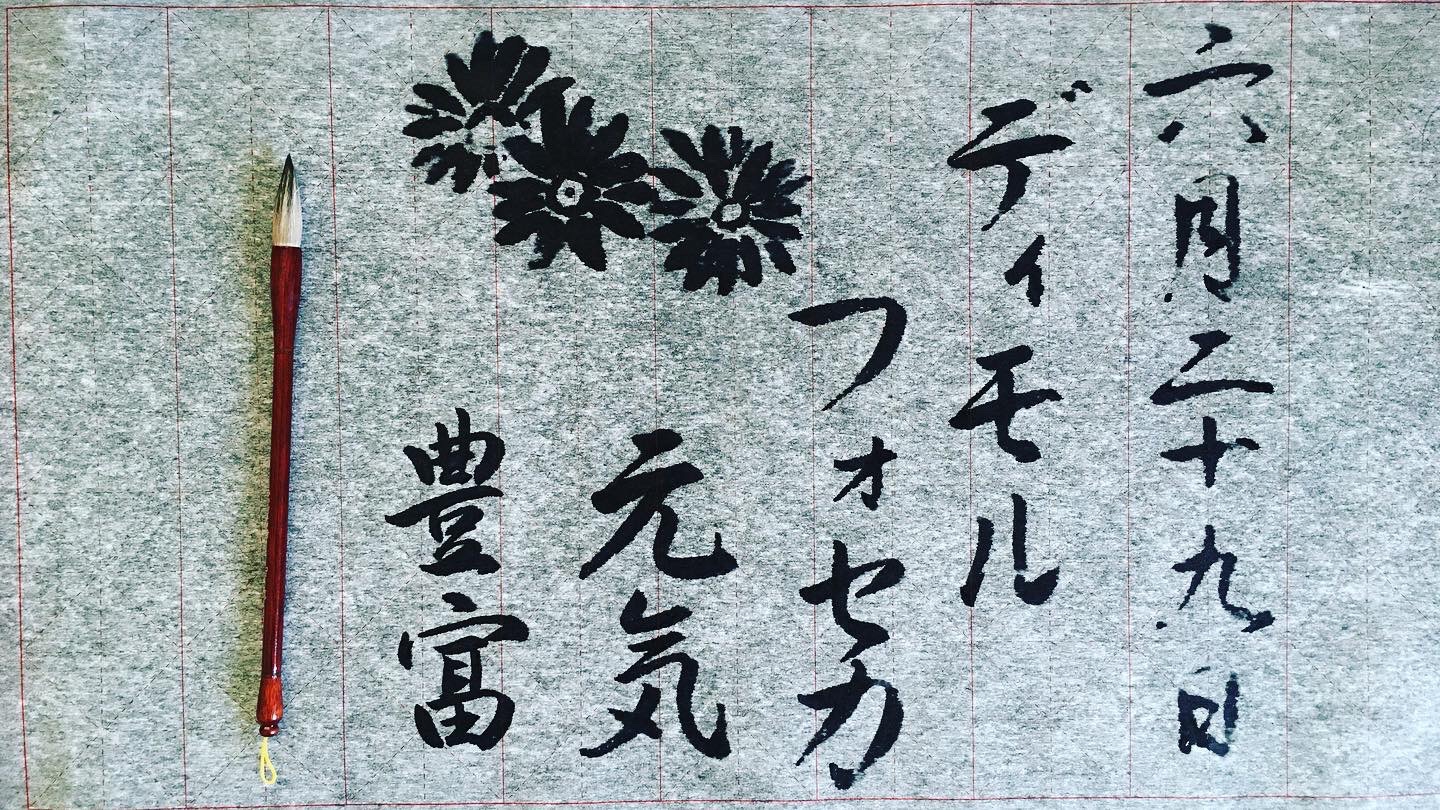 六月二十九日
ディモル
フォセカ
元気
豊富